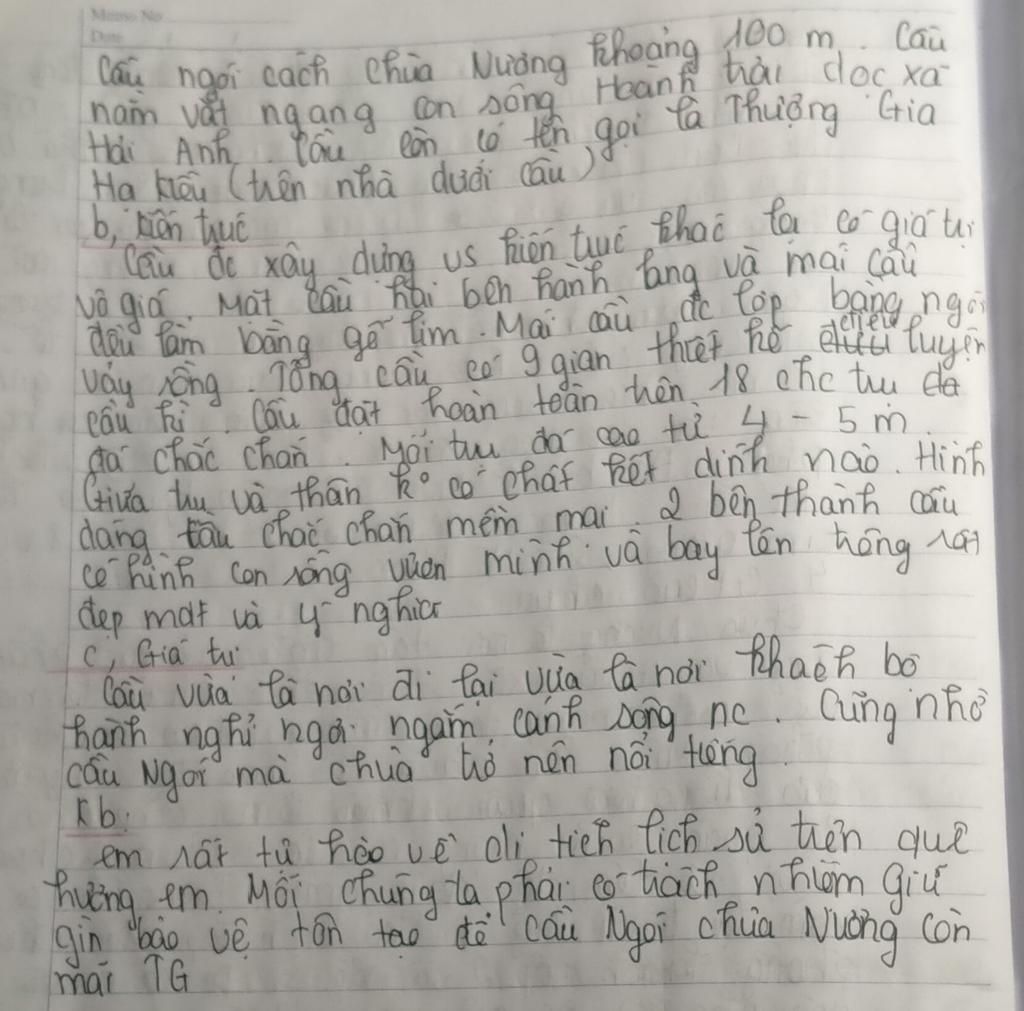 Memo No.
Date
Cầu ngói cách chùa Nương khoảng 100 m. Cầu
nằm vắt ngang con sông Hoành trải dọc xã
Hải Anh. Cầu còn có tên gọi là Thượng Gia
Hạ kiều (trên nhà dưới cầu)
b, kiến trúc
Cầu đc xây dựng vs kiến trúc khác lạ có giá trị
vô giá. Mặt cầu hai bên hành lang và mái cầu
đều làm bằng gỗ lim. Mái cầu đc lợp bằng ngói
vảy rồng. Tổng cầu có 9 gian thiết kế điêu luyện
cầu kì. Cầu đặt hoàn toàn trên 18 chc trụ đá
đá chắc chắn. Mỗi trụ đá cao từ 4 - 5 m.
Giữa trụ và thân ko có chất kết dính nào. Hình
dáng cầu chắc chắn mềm mại. 2 bên thành cầu
có hình con rồng vươn mình và bay lên trông rất
đẹp mắt và ý nghĩa
c, Giá trị
Cầu vừa là nơi đi lại vừa là nơi khách bộ
hành nghỉ ngơi ngắm cảnh sông nc. Cũng nhờ
cầu Ngói mà chùa trở nên nổi tiếng.
Kb:
em rất tự hào về di tích lịch sử trên quê
hương em. Mỗi chúng ta phải có trách nhiệm giữ
gìn bảo vệ tôn tạo để cầu Ngói chùa Nương còn
mãi TG